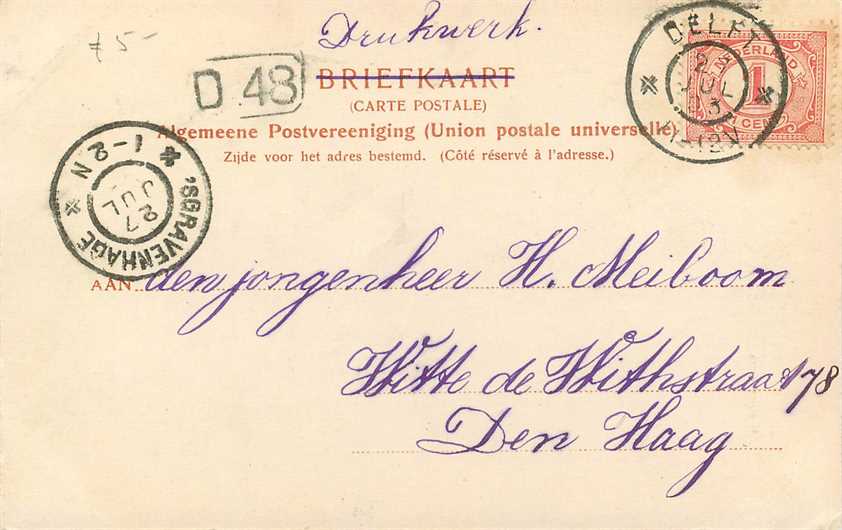 ƒ5-
Drukwerk.
D 48
BRIEFKAART
(CARTE POSTALE)
Algemeene Postvereeniging (Union postale universelle)
Zijde voor het adres bestemd. (Côté réservé à l'adresse.)
DELFT
JUL
NEDERLAND
1
CENT
'SGRAVENHAGE
1-2 N
27
JUL
AAN den jongenheer H. Meiboom
Witte de Withstraat 178
Den Haag